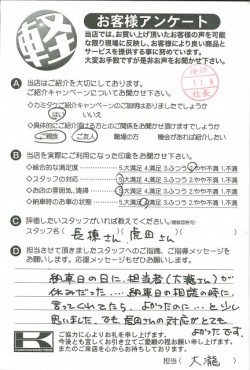 軽
お客様アンケート
当店では、お買い上げ頂いたお客様の声を可能
な限り現場に反映し、お客様により良い商品と
サービスを提供する事に努めています。
大変お手数ですが是非お声をお聞かせ下さい。
A 当店はご紹介を大切にしております。
ご紹介キャンペーンについてお聞かせ下さい。
◇カミタケご紹介キャンペーンのご説明はありましたでしょうか
はい いいえ
◇具体的にご紹介頂ける方とのご関係をお聞かせ頂けましたら幸いです
ご親族 ご友人 職場の方 機会があれば紹介したい
B 当店を実際にご利用になった印象をお聞かせ下さい。
◇総合的な満足度 5.大満足 4.満足 3.ふつう 2.やや不満 1.不満
◇スタッフの対応 5.大満足 4.満足 3.ふつう 2.やや不満 1.不満
◇お店の雰囲気、清掃 5.大満足 4.満足 3.ふつう 2.やや不満 1.不満
◇納車時のお車の状態 5.大満足 4.満足 3.ふつう 2.やや不満 1.不満
C 評価したいスタッフがいれば教えてください。(複数回答可)
スタッフ名( 長濱さん 虎田さん )
D 担当させて頂きましたスタッフへのご指摘、ご指導メッセージを
お願いします。応援メッセージもぜひお願いします。
納車日の日に、担当者(大瀧さん)が
休みだった…。納車日の相談の時に、
言ってくれてたら、よかったのに…と少し
思いました。でも、
の対応がとても
よかったです。
ご協力に心よりお礼を申し上げます。
今後とも宜しくお引き立てご愛顧の程お願い申し上げます。
またのご来店を心からお待ちしております。
担当( 大瀧 )